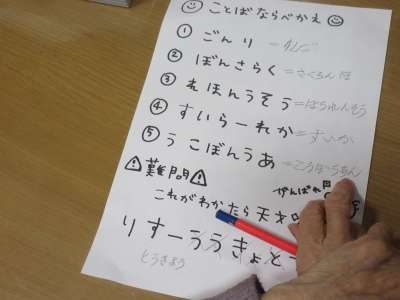 ことばならべかえ
① ごんり =りんご
② ぼんさらく =さくらんぼ
③ れほんうそう =ほうれんそう
④ すいらーれか =すいか
⑤ うこぼんうあ
⚠難問⚠ がんばれ
これがわかたら天才
りすーううきょと
とうきょう